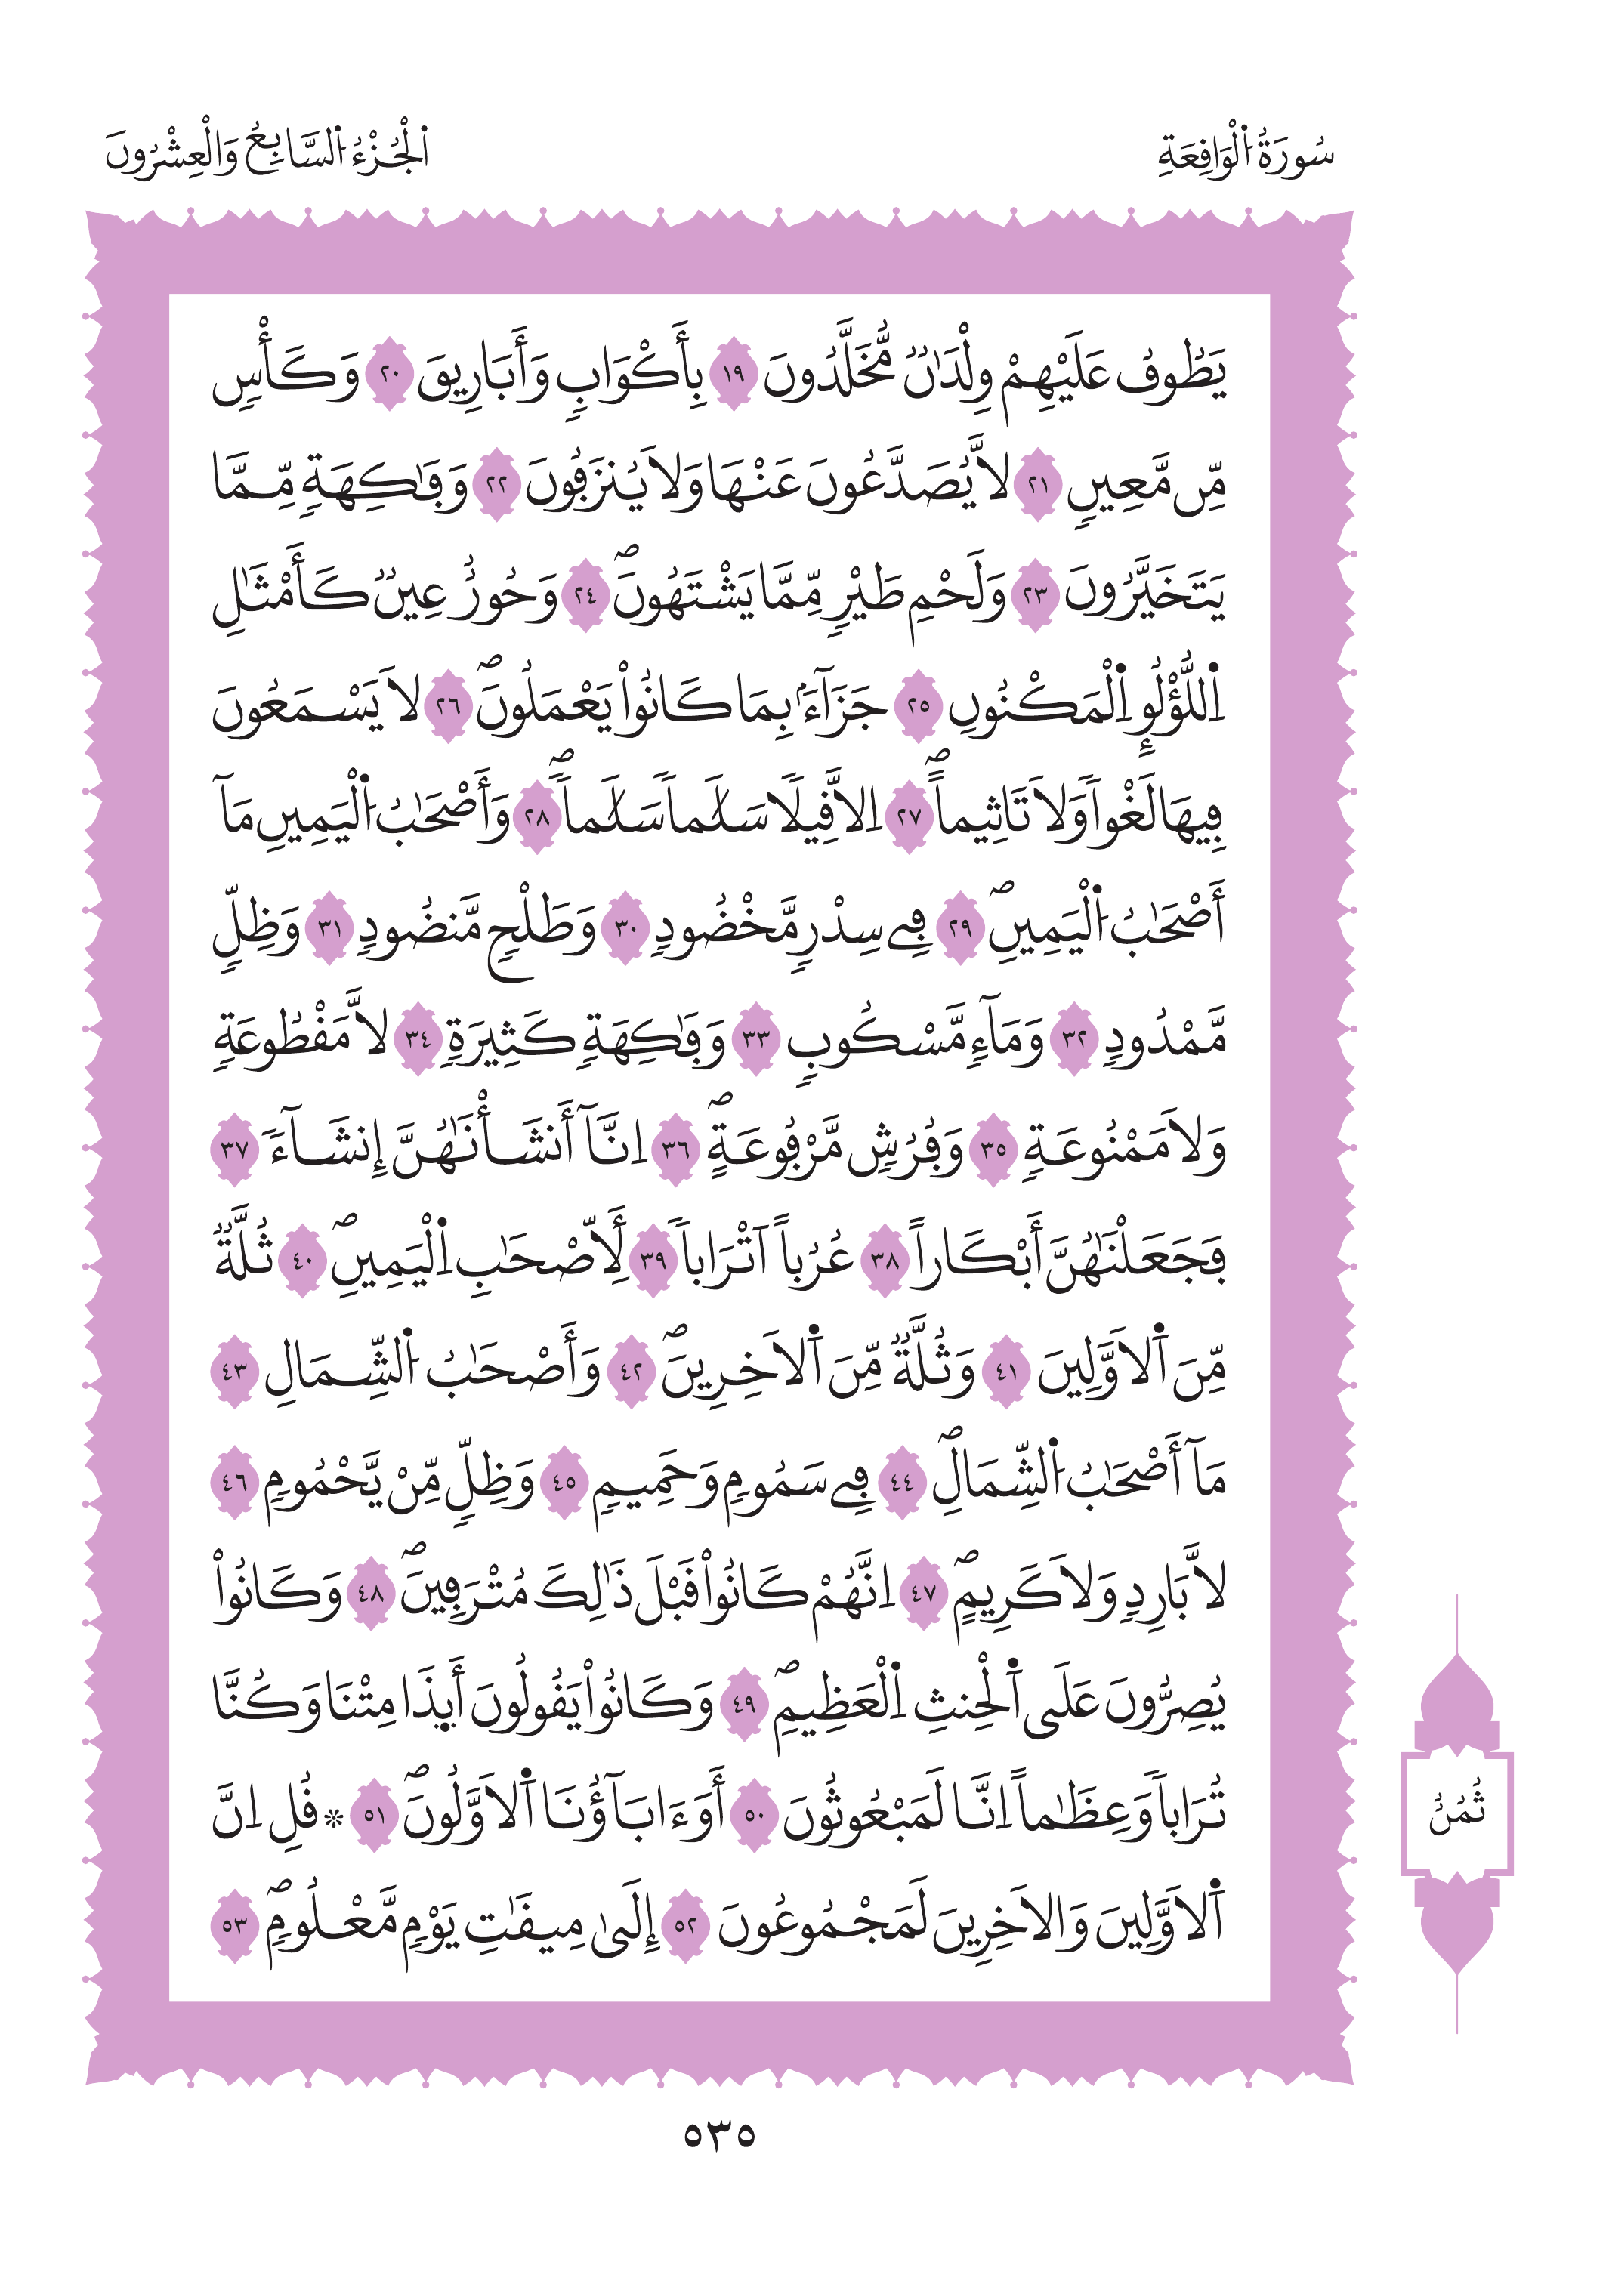 سُورَةُ اُ۬لْوَاقِعَةِ
اَ۬لْجُزْءُ اُ۬لسَّابِعُ وَالْعِشْرُونَ
يَطُوفُ عَلَيْهِمْ وِلْدَٰنٞ مُّخَلَّدُونَ ١٩ بِأَكْوَابٖ وَأَبَارِيقَ ٢٠ وَكَأْسٖ
مِّن مَّعِينٖ ٢١ لَّا يُصَدَّعُونَ عَنْهَا وَلَا يُنزَفُونَ ٢٢ وَفَٰكِهَةٖ مِّمَّا
يَتَخَيَّرُونَ ٢٣ وَلَحْمِ طَيْرٖ مِّمَّا يَشْتَهُونَۖ ٢٤ وَحُورٌ عِينٞ كَأَمْثَٰلِ
اِ۬للُّؤْلُوِٕ اِ۬لْمَكْنُونِ ٢٥ جَزَآءَۢ بِمَا كَانُواْ يَعْمَلُونَۖ ٢٦ لَا يَسْمَعُونَ
فِيهَا لَغْواٗ وَلَا تَاثِيماًۖ ٢٧ اِلَّا قِيلاٗ سَلَٰماٗ سَلَٰماٗۖ ٢٨ وَأَصْحَٰبُ اُ۬لْيَمِينِ مَآ
أَصْحَٰبُ اُ۬لْيَمِينِۖ ٢٩ فِے سِدْرٖ مَّخْضُودٖ ٣٠ وَطَلْحٖ مَّنضُودٖ ٣١ وَظِلّٖ
مَّمْدُودٖ ٣٢ وَمَآءٖ مَّسْكُوبٖ ٣٣ وَفَٰكِهَةٖ كَثِيرَةٖ ٣٤ لَّا مَقْطُوعَةٖ
وَلَا مَمْنُوعَةٖ ٣٥ وَفُرُشٖ مَّرْفُوعَةٍۖ ٣٦ اِنَّآ أَنشَأْنَٰهُنَّ إِنشَآءٗ ٣٧
فَجَعَلْنَٰهُنَّ أَبْكَاراً ٣٨ عُرُباً اَتْرَاباٗ ٣٩ لِّأَصْحَٰبِ اِ۬لْيَمِينِۖ ٤٠ ثُلَّةٞ
مِّنَ اَ۬لَاوَّلِينَ ٤١ وَثُلَّةٞ مِّنَ اَ۬لَاخِرِينَۖ ٤٢ وَأَصْحَٰبُ اُ۬لشِّمَالِ ٤٣
مَآ أَصْحَٰبُ اُ۬لشِّمَالِۖ ٤٤ فِے سَمُومٖ وَحَمِيمٖ ٤٥ وَظِلّٖ مِّنْ يَّحْمُومٖ ٤٦
لَّا بَارِدٖ وَلَا كَرِيمٍۖ ٤٧ اِنَّهُمْ كَانُواْ قَبْلَ ذَٰلِكَ مُتْرَفِينَۖ ٤٨ وَكَانُواْ
يُصِرُّونَ عَلَى اَ۬لْحِنثِ اِ۬لْعَظِيمِۖ ٤٩ وَكَانُواْ يَقُولُونَ أَئِذَا مِتْنَا وَكُنَّا
تُرَاباٗ وَعِظَٰماً اِنَّا لَمَبْعُوثُونَ ٥٠ أَوَءَابَآؤُنَا اَ۬لَاوَّلُونَۖ ٥١ ۞قُلِ اِنَّ
اَ۬لَاوَّلِينَ وَالَاخِرِينَ لَمَجْمُوعُونَ ٥٢ إِلَىٰ مِيقَٰتِ يَوْمٖ مَّعْلُومٖۖ ٥٣
ثُمُنٌ
٥٣٥